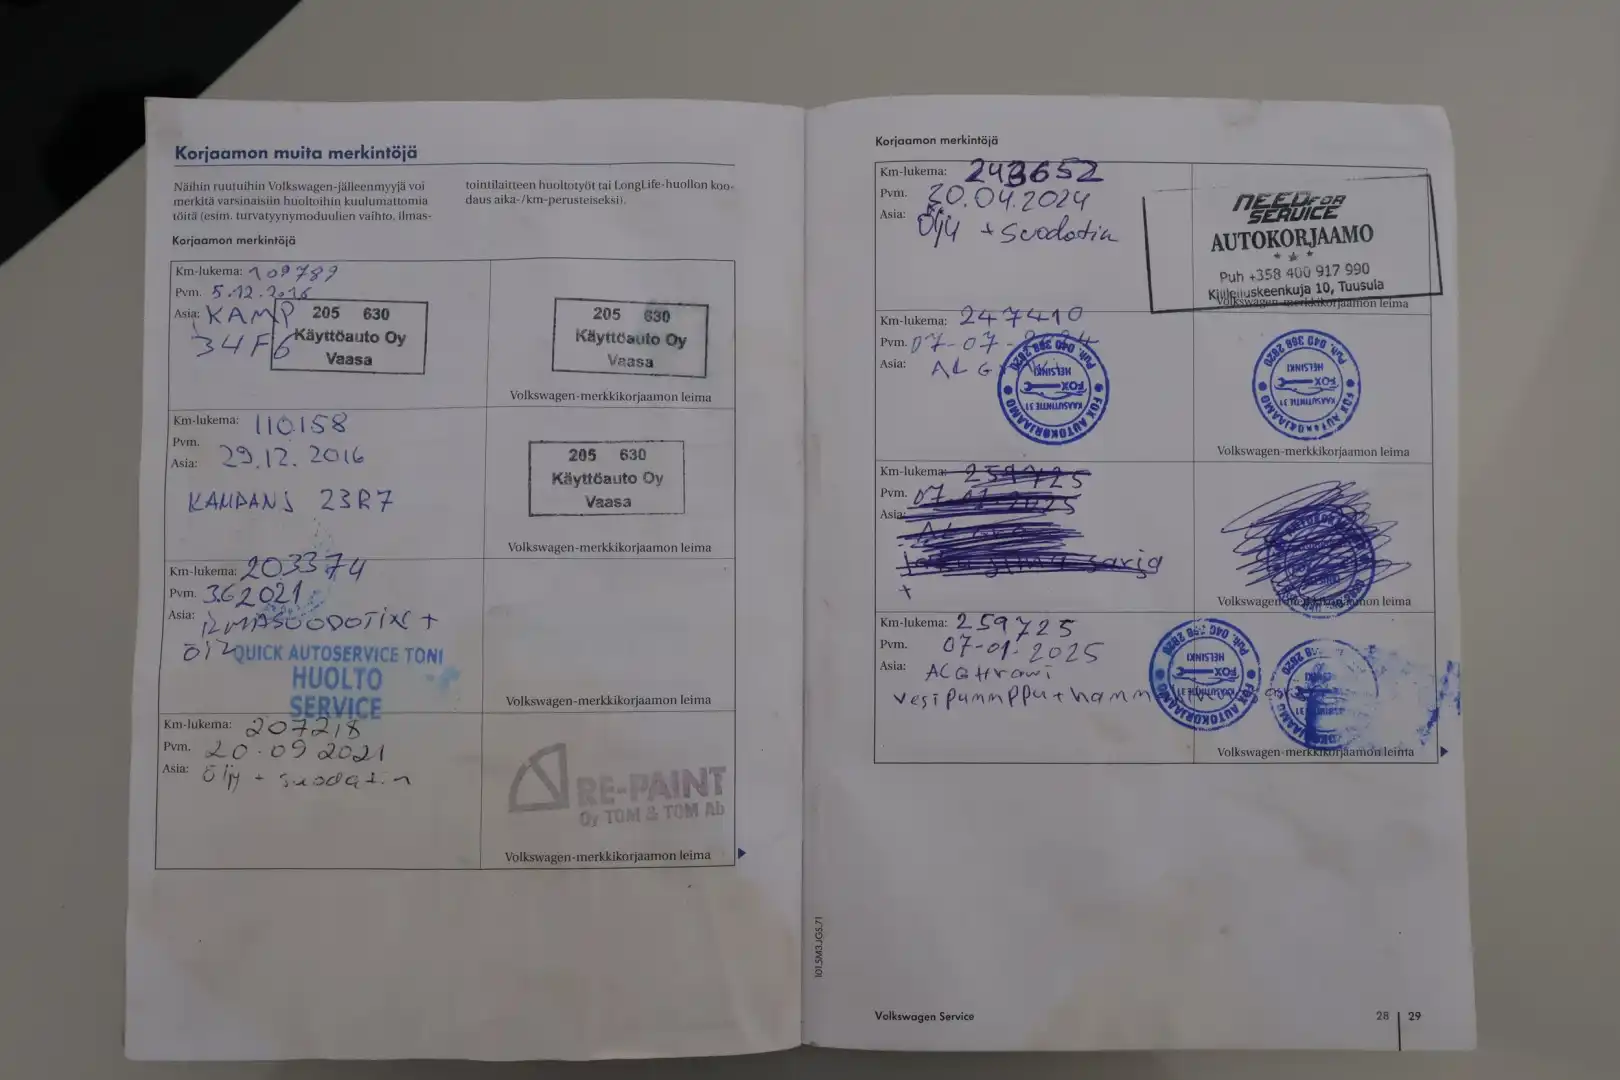 Korjaamon muita merkintöjä
Näihin ruutuihin Volkswagen-jälleenmyyjä voi
merkitä varsinaisiin huoltoihin kuulumattomia
töitä (esim. turvatyynymoduulien vaihto, ilmas-
tointilaitteen huoltotyöt tai LongLife-huollon koo-
daus aika-/km-perusteiseksi).
Korjaamon merkintöjä
Km-lukema: 109789
Pvm. 5.12.2016
Asia: KAMP
34F6
205 630
Käyttöauto Oy
Vaasa
205 630
Käyttöauto Oy
Vaasa
Volkswagen-merkkikorjaamon leima
Km-lukema: 110158
Pvm.
Asia: 29.12.2016
KAMPANJ 23R7
205 630
Käyttöauto Oy
Vaasa
Volkswagen-merkkikorjaamon leima
Km-lukema: 203374
Pvm. 3.6 2021
Asia:
QUICK AUTOSERVICE TONI
HUOLTO
SERVICE
Volkswagen-merkkikorjaamon leima
Km-lukema: 207218
Pvm. 20.09 2021
Asia: Öljy + suodatin
RE-PAINT
Oy TOM & TOM Ab
Volkswagen-merkkikorjaamon leima
Korjaamon merkintöjä
Km-lukema: 243652
Pvm. 30.04.2024
Asia: Öljy + Suodatin
NEED FOR
SERVICE
AUTOKORJAAMO
Puh +358 400 917 990
Kiilleliuskeenkuja 10, Tuusula
Volkswagen-merkkikorjaamon leima
Km-lukema: 247410
Pvm. 07-07-
Asia:
FOX AUTOKORJAAMO
KAASUTINTIE 31
FOX
HELSINKI
Puh. 040 368 2820
FOX AUTOKORJAAMO
KAASUTINTIE 31
FOX
HELSINKI
Puh. 040 368 2820
Volkswagen-merkkikorjaamon leima
Km-lukema: 259725
Pvm. 07-01-2025
Asia:
+
Volkswagen-merkkikorjaamon leima
Km-lukema: 259725
Pvm. 07-01-2025
Asia:
FOX AUTOKORJAAMO
KAASUTINTIE 31
FOX
HELSINKI
Puh. 040 368 2820
Volkswagen-merkkikorjaamon leima
101.5M3.JGS.71
Volkswagen Service
28 29